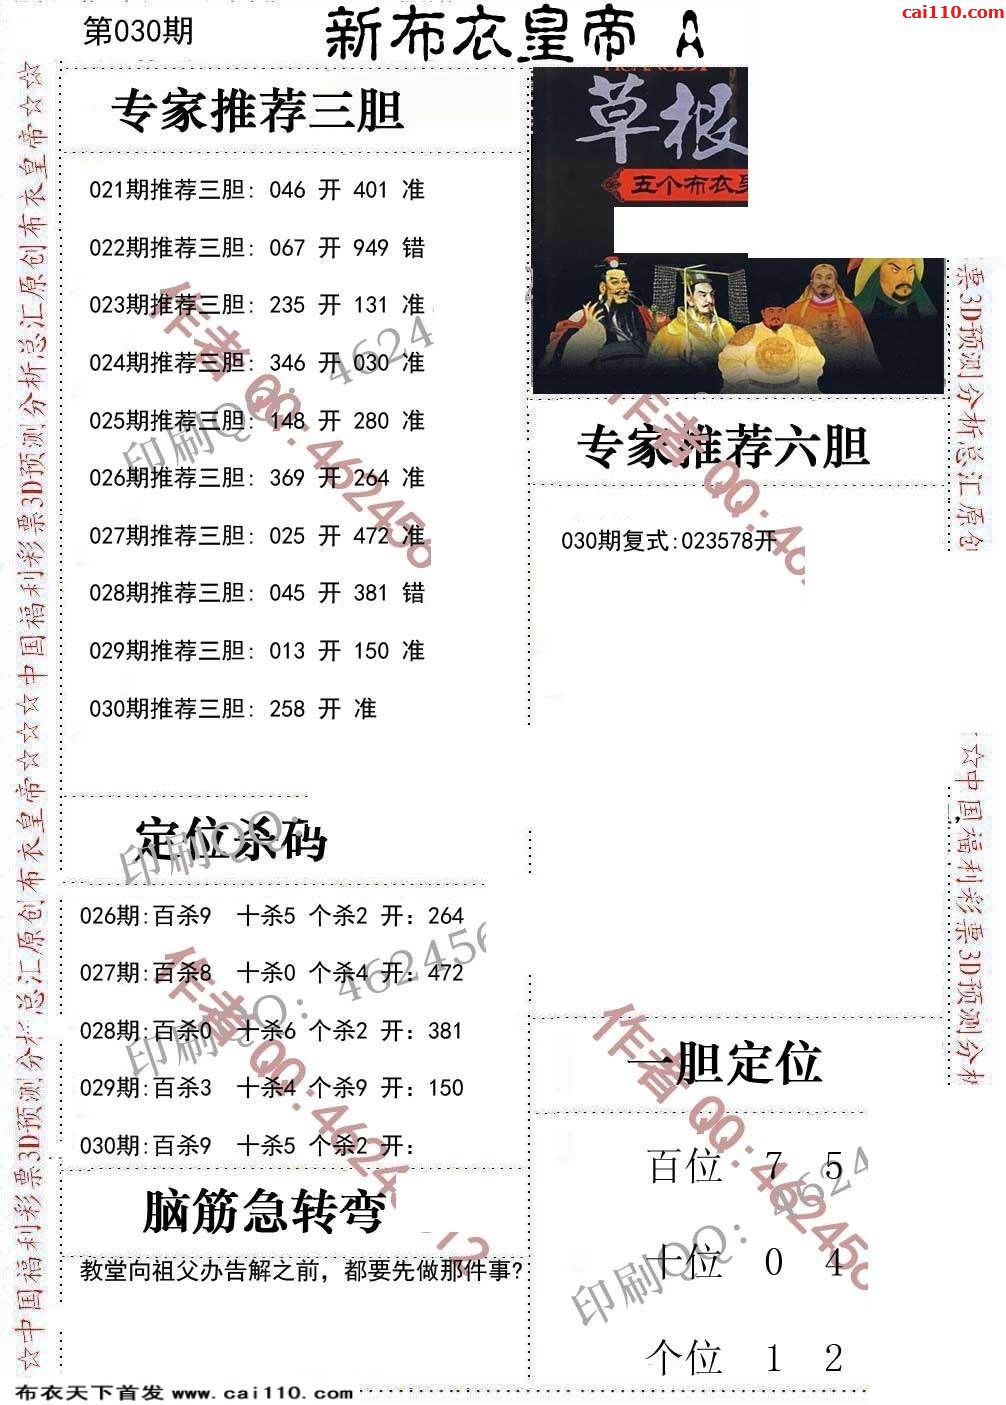 cai110.com
第030期
新布衣皇帝 A
专家推荐三胆
021期推荐三胆: 046 开 401 准
022期推荐三胆: 067 开 949 错
023期推荐三胆: 235 开 131 准
024期推荐三胆: 346 开 030 准
025期推荐三胆: 148 开 280 准
026期推荐三胆: 369 开 264 准
027期推荐三胆: 025 开 472 准
028期推荐三胆: 045 开 381 错
029期推荐三胆: 013 开 150 准
030期推荐三胆: 258 开 准
草根
五个布衣
专家推荐六胆
030期复式:023578开
定位杀码
026期:百杀9 十杀5 个杀2 开: 264
027期:百杀8 十杀0 个杀4 开: 472
028期:百杀0 十杀6 个杀2 开: 381
029期:百杀3 十杀4 个杀9 开: 150
030期:百杀9 十杀5 个杀2 开:
脑筋急转弯
教堂向祖父办告解之前，都要先做那件事?
一胆定位
百位 7 5
十位 0 4
个位 1 2
☆中国福利彩票3D预测分析总汇原创布衣皇帝☆☆☆中国福利彩票3D预测分析总汇原创布衣皇帝☆☆
票3D预测分析总汇原创
☆中国福利彩票3D预测分析
作者QQ:462456
印刷QQ: 4624
作者QQ:46
印刷QQ: 462456
作者QQ:4624
作者QQ:462456
印刷QQ: 4624
布衣天下首发 www.cai110.com